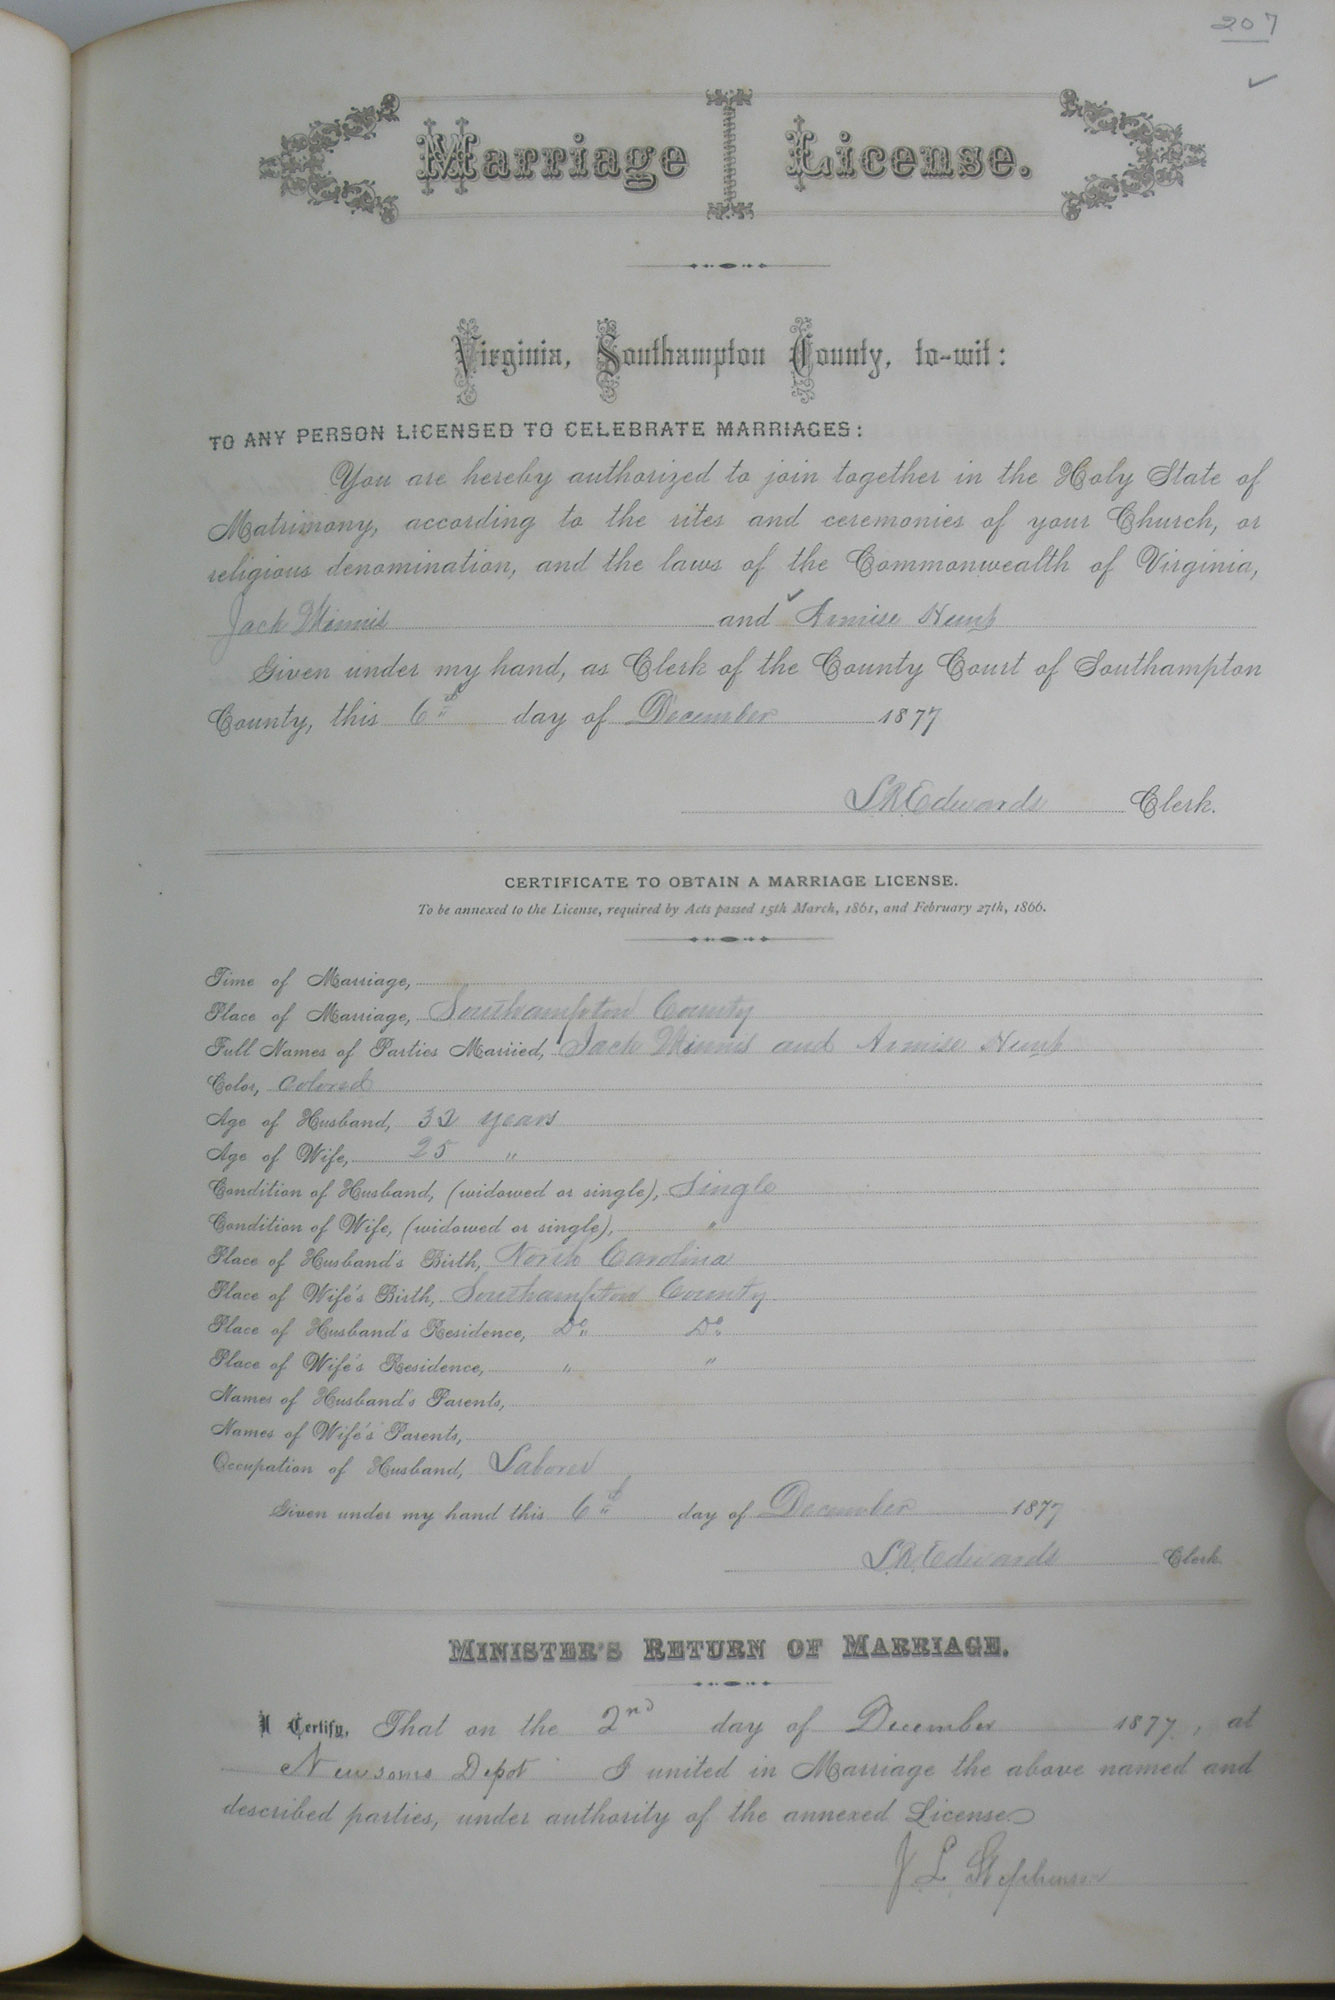 207
Marriage License.
Virginia, Southampton County, to-wit:
TO ANY PERSON LICENSED TO CELEBRATE MARRIAGES:
You are hereby authorized to join together in the Holy State of
Matrimony, according to the rites and ceremonies of your Church, or
religious denomination, and the laws of the Commonwealth of Virginia,
Jack Minnis and Armise
Given under my hand, as Clerk of the County Court of Southampton
County, this 6th day of December 1877
L R Edwards Clerk.
CERTIFICATE TO OBTAIN A MARRIAGE LICENSE.
To be annexed to the License, required by Acts passed 15th March, 1861, and February 27th, 1866.
Time of Marriage,
Place of Marriage, Southampton County
Full Names of Parties Married, Jack Minnis and Armise
Color, Colored
Age of Husband, 32 years
Age of Wife, 25 "
Condition of Husband, (widowed or single), Single
Condition of Wife, (widowed or single), "
Place of Husband's Birth, North Carolina
Place of Wife's Birth, Southampton County
Place of Husband's Residence, Do Do
Place of Wife's Residence, " "
Names of Husband's Parents,
Names of Wife's Parents,
Occupation of Husband, Laborer
Given under my hand this 6th day of December 1877
L.R. Edwards Clerk.
MINISTER'S RETURN OF MARRIAGE.
I Certify, That on the 2nd day of December 1877, at
Newsoms Depot I united in Marriage the above named and
described parties, under authority of the annexed License.
J. L. Stephenson